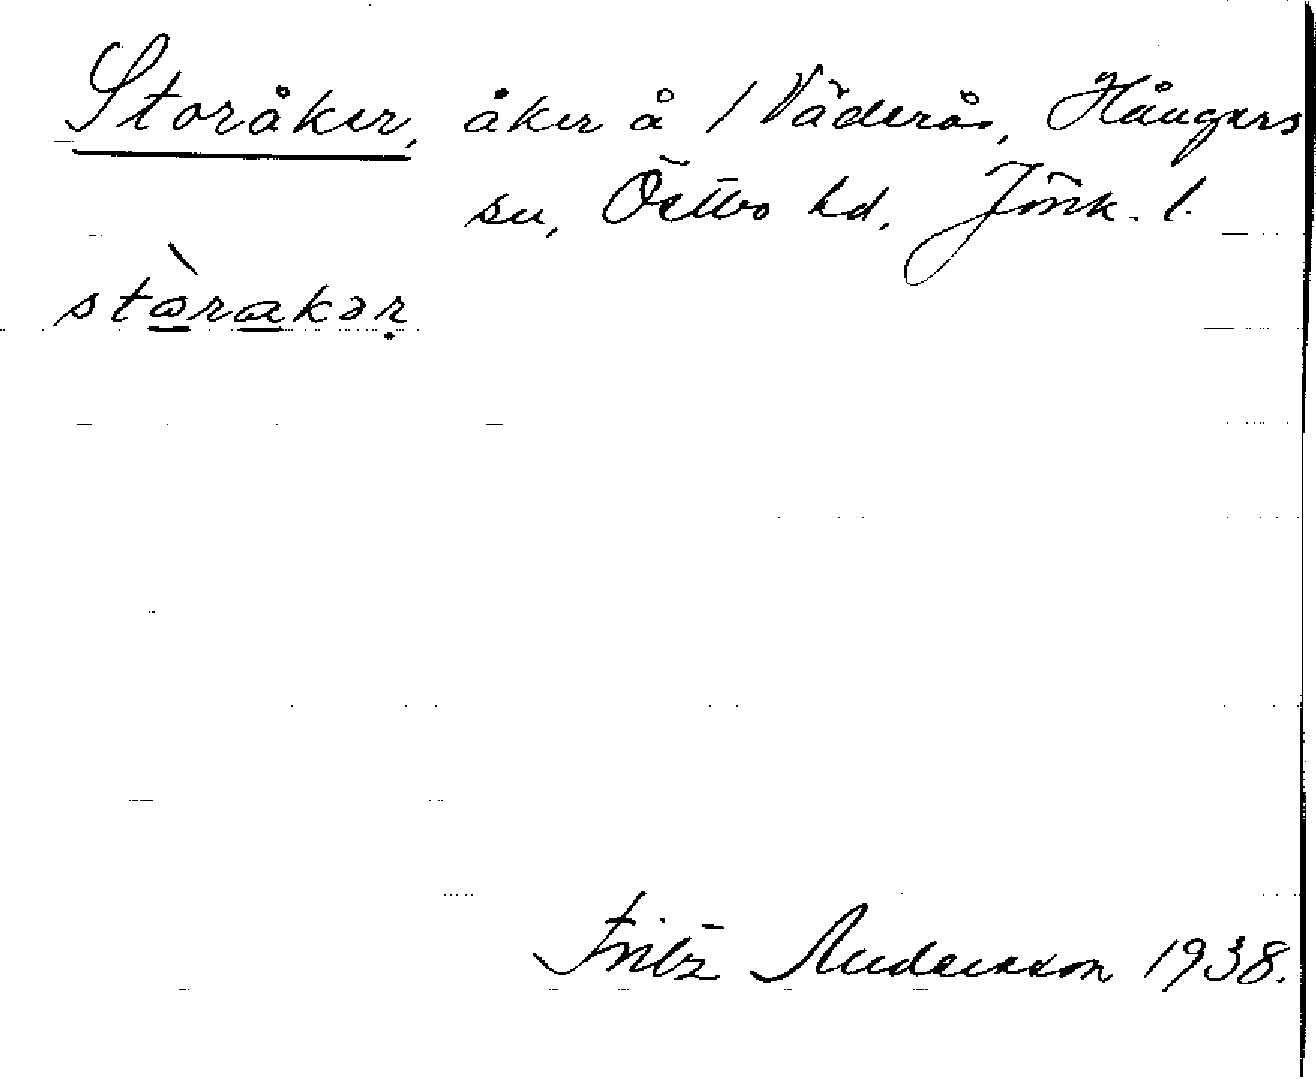 Storåker, åker å 1 Väderås, Hångers
sn, Östbo hd, Jönk. l.
stòrakər
Fritz Andersson 1938.